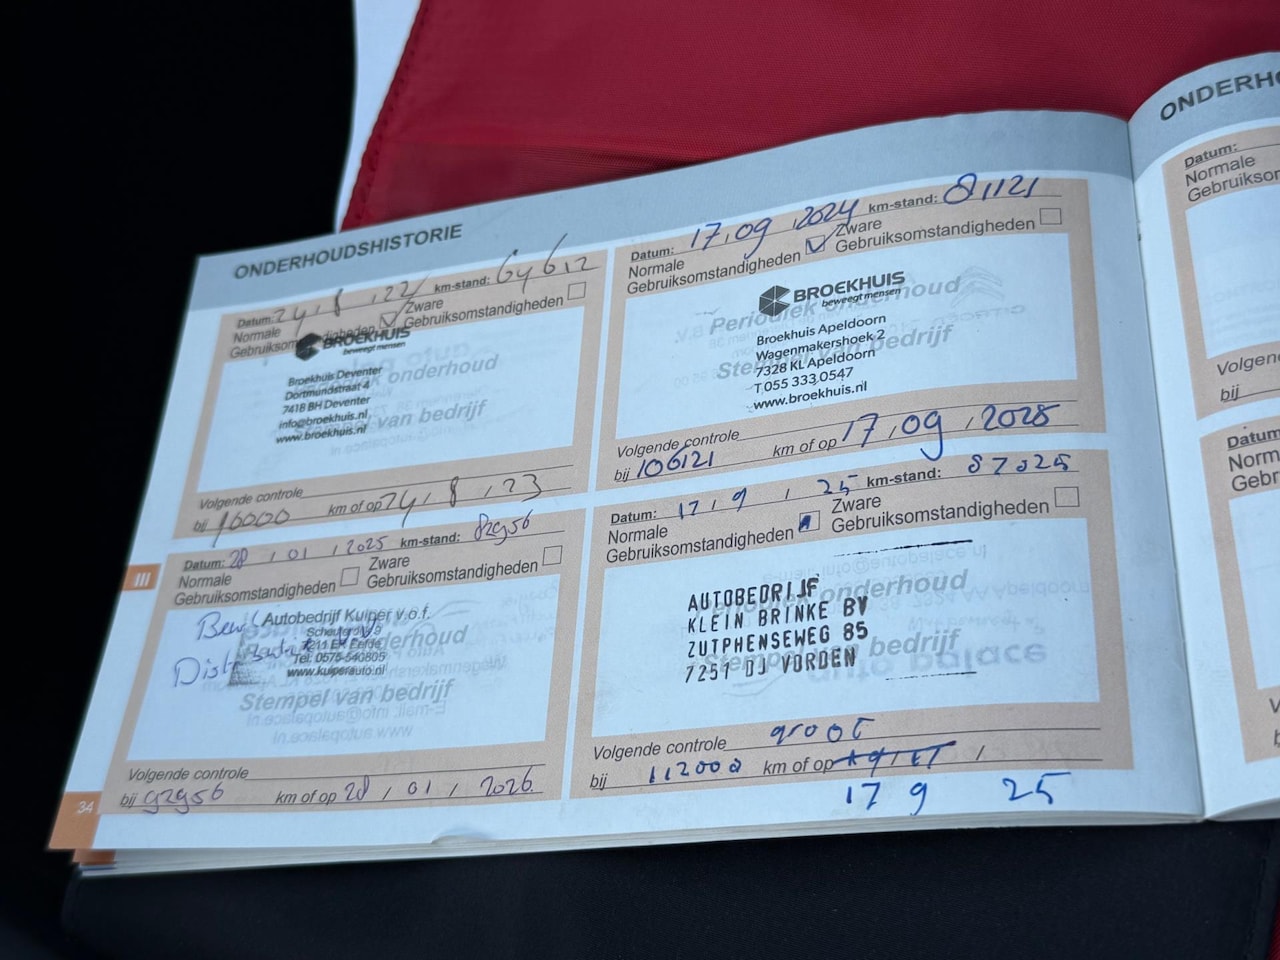 ONDERHOUDSHISTORIE
Datum: 24 / 8 / 22 / km-stand: 64612
Normale
Zware
Gebruiksomstandigheden
BROEKHUIS
beweegt mensen
Broekhuis Deventer
Dortmundstraat 4
7418 BH Deventer
info@broekhuis.nl
www.broekhuis.nl
Periodiek onderhoud
Stempel van bedrijf
Volgende controle
bij 96000 km of op 24 / 8 / 23
Datum: 17 / 09 / 2024 km-stand: 81121
Normale
Gebruiksomstandigheden
Zware
Gebruiksomstandigheden
BROEKHUIS
beweegt mensen
Periodiek onderhoud
Broekhuis Apeldoorn
Wagenmakershoek 2
7328 KL Apeldoorn
T 055 333 0547
www.broekhuis.nl
Stempel van bedrijf
Volgende controle
bij 106121 km of op 17 / 09 / 2025
III
Datum: 28 / 01 / 2025 km-stand: 82956
Normale
Gebruiksomstandigheden
Zware
Gebruiksomstandigheden
Autobedrijf Kuiper v.o.f.
7211 EK Eefde
Tel. 0575-540805
www.kuiperauto.nl
Stempel van bedrijf
Volgende controle
bij 92956 km of op 28 / 01 / 2026
34
Datum: 17 / 9 / 25 km-stand: 87025
Normale
Gebruiksomstandigheden
Zware
Gebruiksomstandigheden
AUTOBEDRIJF
KLEIN BRINKE BV
ZUTPHENSEWEG 85
7251 DJ VORDEN
Periodiek onderhoud
Stempel van bedrijf
Volgende controle groot
bij 112000 km of op
17 9 25
ONDERH
Datum:
Normale
Gebruiksom
Volgend
bij
Datum
Norm
Gebr